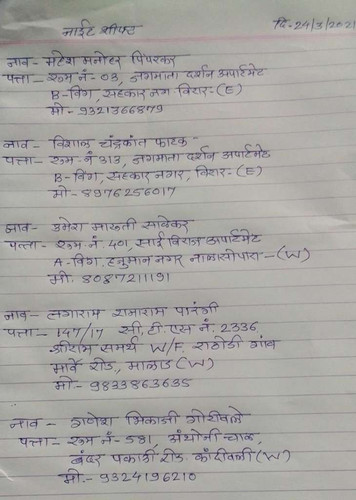 नाईट शीफ्ट दि-24/3/2021
नाव- महेश मनोहर पिंपरकर
पत्ता- रूम नं-03, जगमाता दर्शन अपार्टमेंट
B-विंग, सहकार नगर विरार-(E)
मो-9321366879
नाव- विशाल चंद्रकांत फाटक
पत्ता- रूम-नं 313, जगमाता दर्शन अपार्टमेंट
B-विंग, सहकार नगर, विरार-(E)
मो-8976256017
नाव- उमेश मारुती सावेकर
पत्ता- रूम नं. 401, साई विराज अपार्टमेंट
A-विंग, हनुमान नगर नालासोपारा-(W)
मो. 8087211191
नाव- लगाराम रामाराम पारंगी
पत्ता- 147/17 सी.टी.एस नं. 2336,
श्रीराम समर्थ W/F. राठोडी गांव
मार्वे रोड, मालाड (W)
मो- 9833863635
नाव- गणेश भिकाजी गोरीवले
पत्ता- रूम नं-531, अंथोनी चाळ,
बंदर पकाडी रोड. कांदीवली (W)
मो.-9324196210